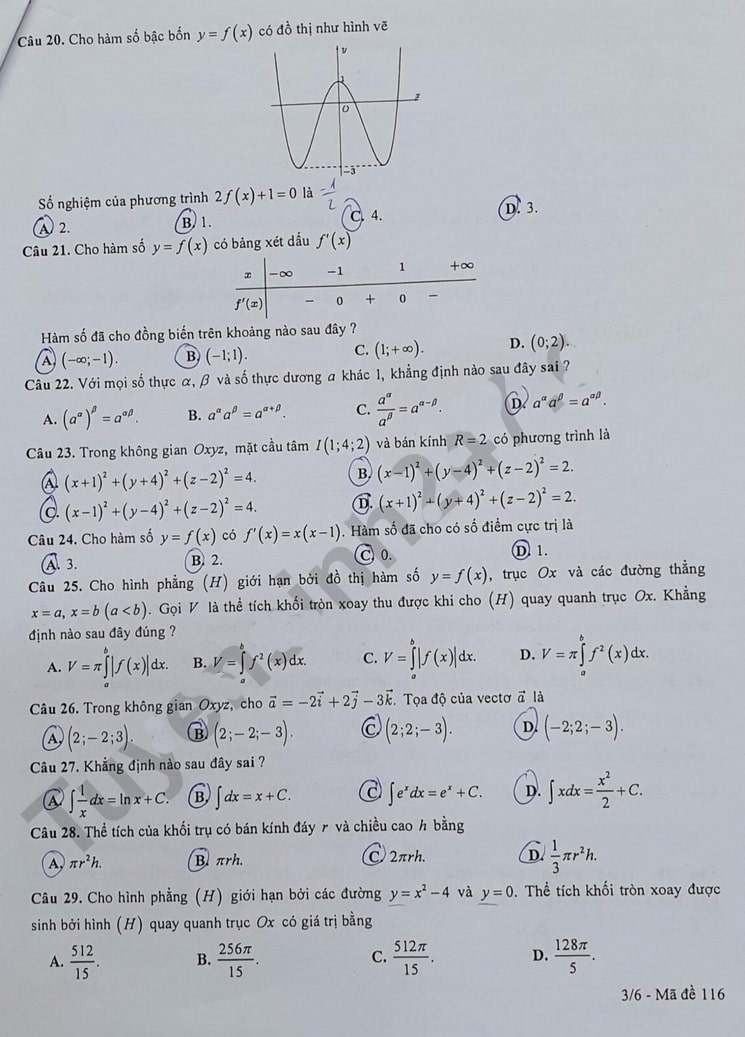 Câu 20. Cho hàm số bậc bốn y = f(x) có đồ thị như hình vẽ
y
1
x
O
-3
Số nghiệm của phương trình 2f(x)+1=0 là -1/2
A. 2. B. 1. C. 4. D. 3.
Câu 21. Cho hàm số y = f(x) có bảng xét dấu f'(x)
x -∞ -1 1 +∞
f'(x) - 0 + 0 -
Hàm số đã cho đồng biến trên khoảng nào sau đây ?
A. (-∞;-1). B. (-1;1). C. (1;+∞). D. (0;2).
Câu 22. Với mọi số thực α, β và số thực dương a khác 1, khẳng định nào sau đây sai ?
A. (a^α)^β = a^{αβ}. B. a^α a^β = a^{α+β}. C. a^α/a^β = a^{α-β}. D. a^α a^β = a^{αβ}.
Câu 23. Trong không gian Oxyz, mặt cầu tâm I(1;4;2) và bán kính R = 2 có phương trình là
A. (x+1)²+(y+4)²+(z-2)² = 4. B. (x-1)²+(y-4)²+(z-2)² = 2.
C. (x-1)²+(y-4)²+(z-2)² = 4. D. (x+1)²+(y+4)²+(z-2)² = 2.
Câu 24. Cho hàm số y = f(x) có f'(x) = x(x-1). Hàm số đã cho có số điểm cực trị là
A. 3. B. 2. C. 0. D. 1.
Câu 25. Cho hình phẳng (H) giới hạn bởi đồ thị hàm số y = f(x), trục Ox và các đường thẳng
x = a, x = b (a < b). Gọi V là thể tích khối tròn xoay thu được khi cho (H) quay quanh trục Ox. Khẳng
định nào sau đây đúng ?
A. V = π∫_a^b |f(x)|dx. B. V = ∫_a^b f²(x)dx. C. V = ∫_a^b |f(x)|dx. D. V = π∫_a^b f²(x)dx.
Câu 26. Trong không gian Oxyz, cho a⃗ = -2i⃗ + 2j⃗ - 3k⃗. Tọa độ của vectơ a⃗ là
A. (2;-2;3). B. (2;-2;-3). C. (2;2;-3). D. (-2;2;-3).
Câu 27. Khẳng định nào sau đây sai ?
A. ∫1/x dx = ln x + C. B. ∫dx = x + C. C. ∫e^x dx = e^x + C. D. ∫xdx = x²/2 + C.
Câu 28. Thể tích của khối trụ có bán kính đáy r và chiều cao h bằng
A. πr²h. B. πrh. C. 2πrh. D. 1/3 πr²h.
Câu 29. Cho hình phẳng (H) giới hạn bởi các đường y = x² - 4 và y = 0. Thể tích khối tròn xoay được
sinh bởi hình (H) quay quanh trục Ox có giá trị bằng
A. 512/15. B. 256π/15. C. 512π/15. D. 128π/5.
3/6 - Mã đề 116